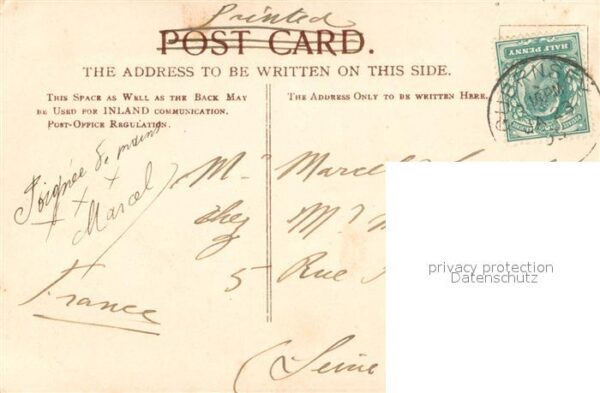 Printed
POST CARD.
THE ADDRESS TO BE WRITTEN ON THIS SIDE.
THIS SPACE AS WELL AS THE BACK MAY
BE USED FOR INLAND COMMUNICATION.
POST-OFFICE REGULATION.
THE ADDRESS ONLY TO BE WRITTEN HERE.
HALF PENNY
Poignée de mains
Marcel
France
Mr Marcel
chez Mr
5 Rue
(Seine
privacy protection
Datenschutz